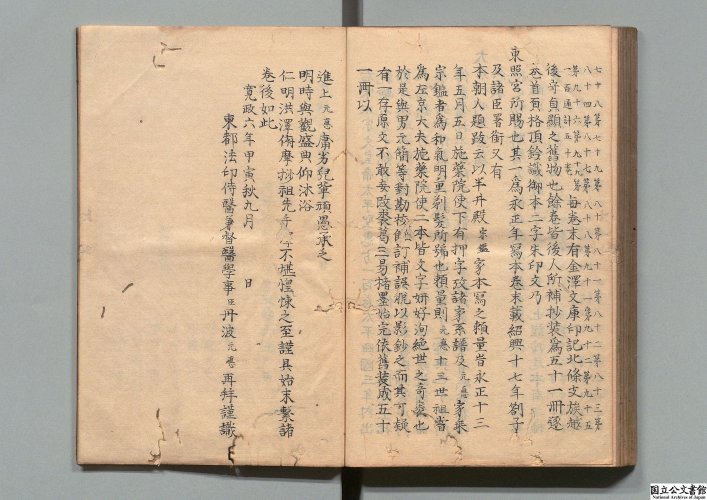 七十八第七十九第八十第八十一第八十二第八十三第
八十四第八十七第八十八第九十一第九十二第九十五
第九十六第九十九第
一百通計五十卷
每卷末有金澤文庫印記北條文族越
後守貞顯之舊物也餘卷皆後人所補抄裝爲五十一冊逐
卷首頁格頂鈐識御本二字朱印文乃
東照宮所賜也其一爲永正年寫本卷末載紹興十七年劄子
及諸臣署銜又有
本朝人題跋云以半井殿家本寫之賴量旹永正十三
年五月五日施藥院使下有押字攷諸家系譜及元悳家乘
宗鑑者爲和氣明重剃髮所號也賴量則元悳十三世祖嘗
爲左京大夫施藥院使二本皆文字妍好洵絕世之奇卷也
於是與男元簡等對勘校訂補誤脫以影鈔之而其可疑
有一存原文不敢妄改裘葛三易楮墨始完依舊裝成五十
一冊以
進上元悳庸劣兒輩頑愚承乏
明時與觀盛典仰沐浴
仁明洪澤俯摩抄祖先手不堪惶悚之至謹具始末繫諸
卷後如此
寬政六年甲寅秋九月 日
東都法印侍醫兼督醫學事臣丹波元悳再拜謹識
国立公文書館
National Archives of Japan